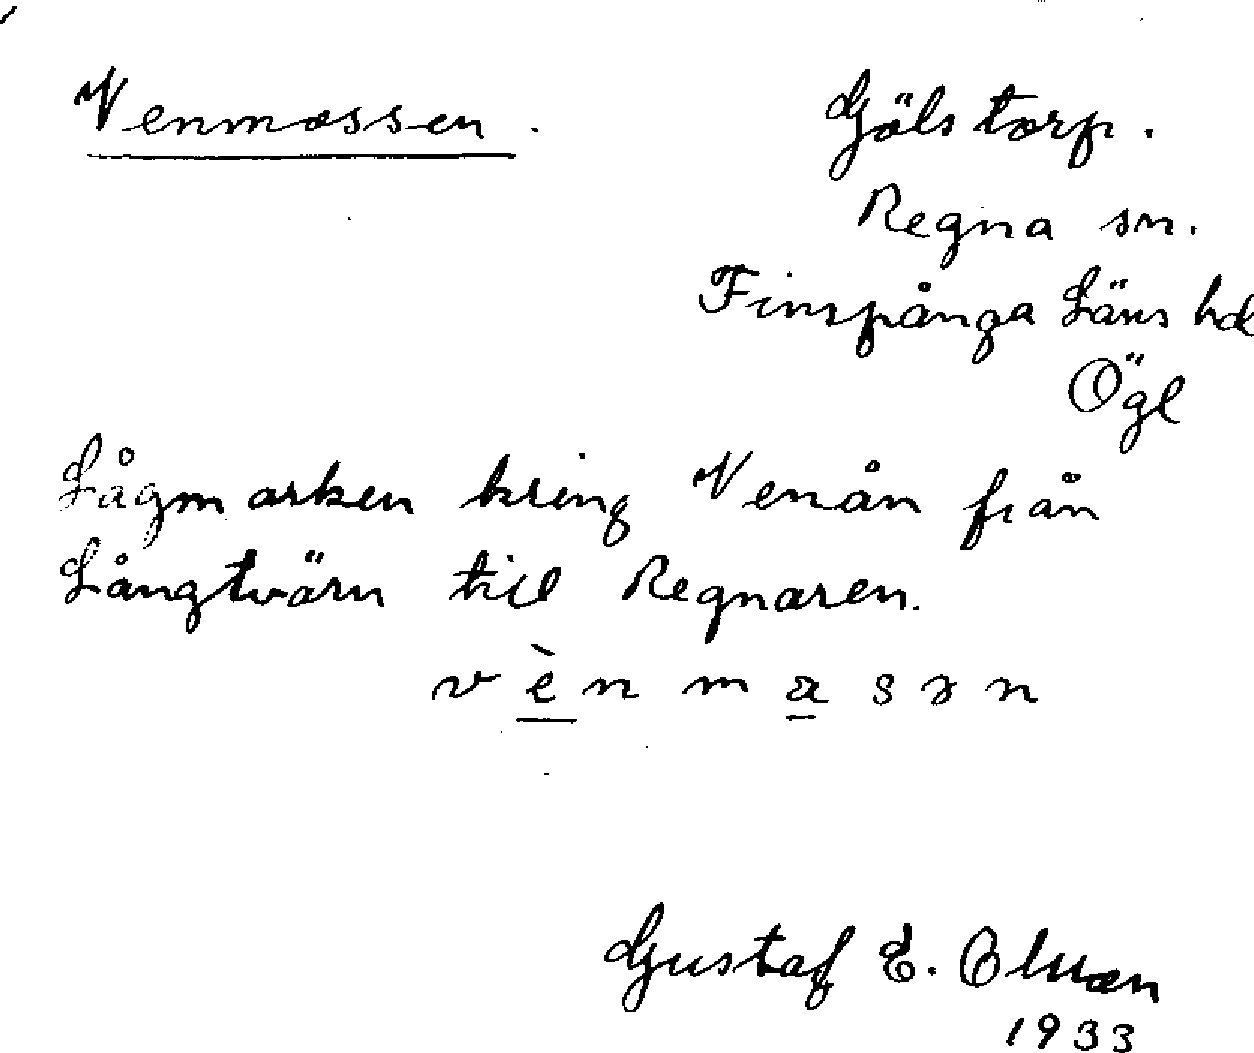 Venmossen.
Gölstorp.
Regna sn.
Finspånga Läns hd
Ögl
Lågmarken kring Venån från
Långtvärn till Regnaren.
Gustaf E.
1933